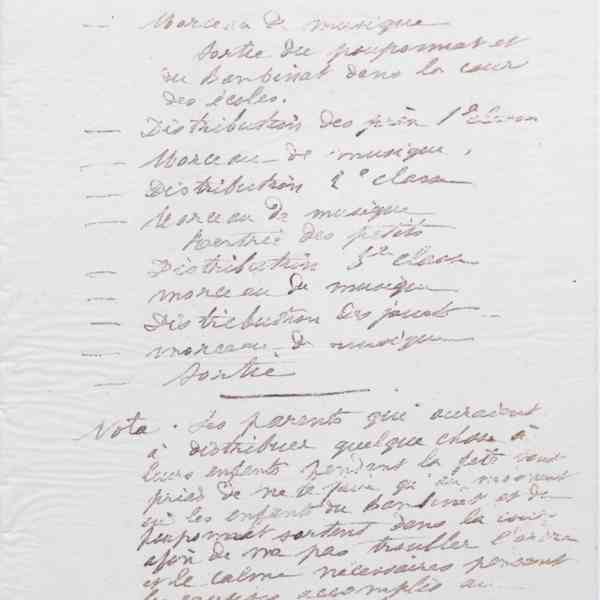 — Morceau de musique
Sortie du pouponnat et
du Bambinat dans la cour
des écoles.
— Distribution des prix 1e classe
— Morceau de musique,
— Distribution 2e classe
— Morceau de musique
Rentrée des petits
— Distribution 3e classe
— morceau de musique
— Distribution des jouets
— morceau de musique
— Sortie
Nota. Les parents qui auraient
à distribuer quelque chose à
leurs enfants pendant la fête sont
priés de ne le faire qu'au moment
où les enfants du Bambinat et du
pouponnat sortent dans la cour
afin de ne pas troubler l'ordre
et le calme nécessaires pendant
accomplis